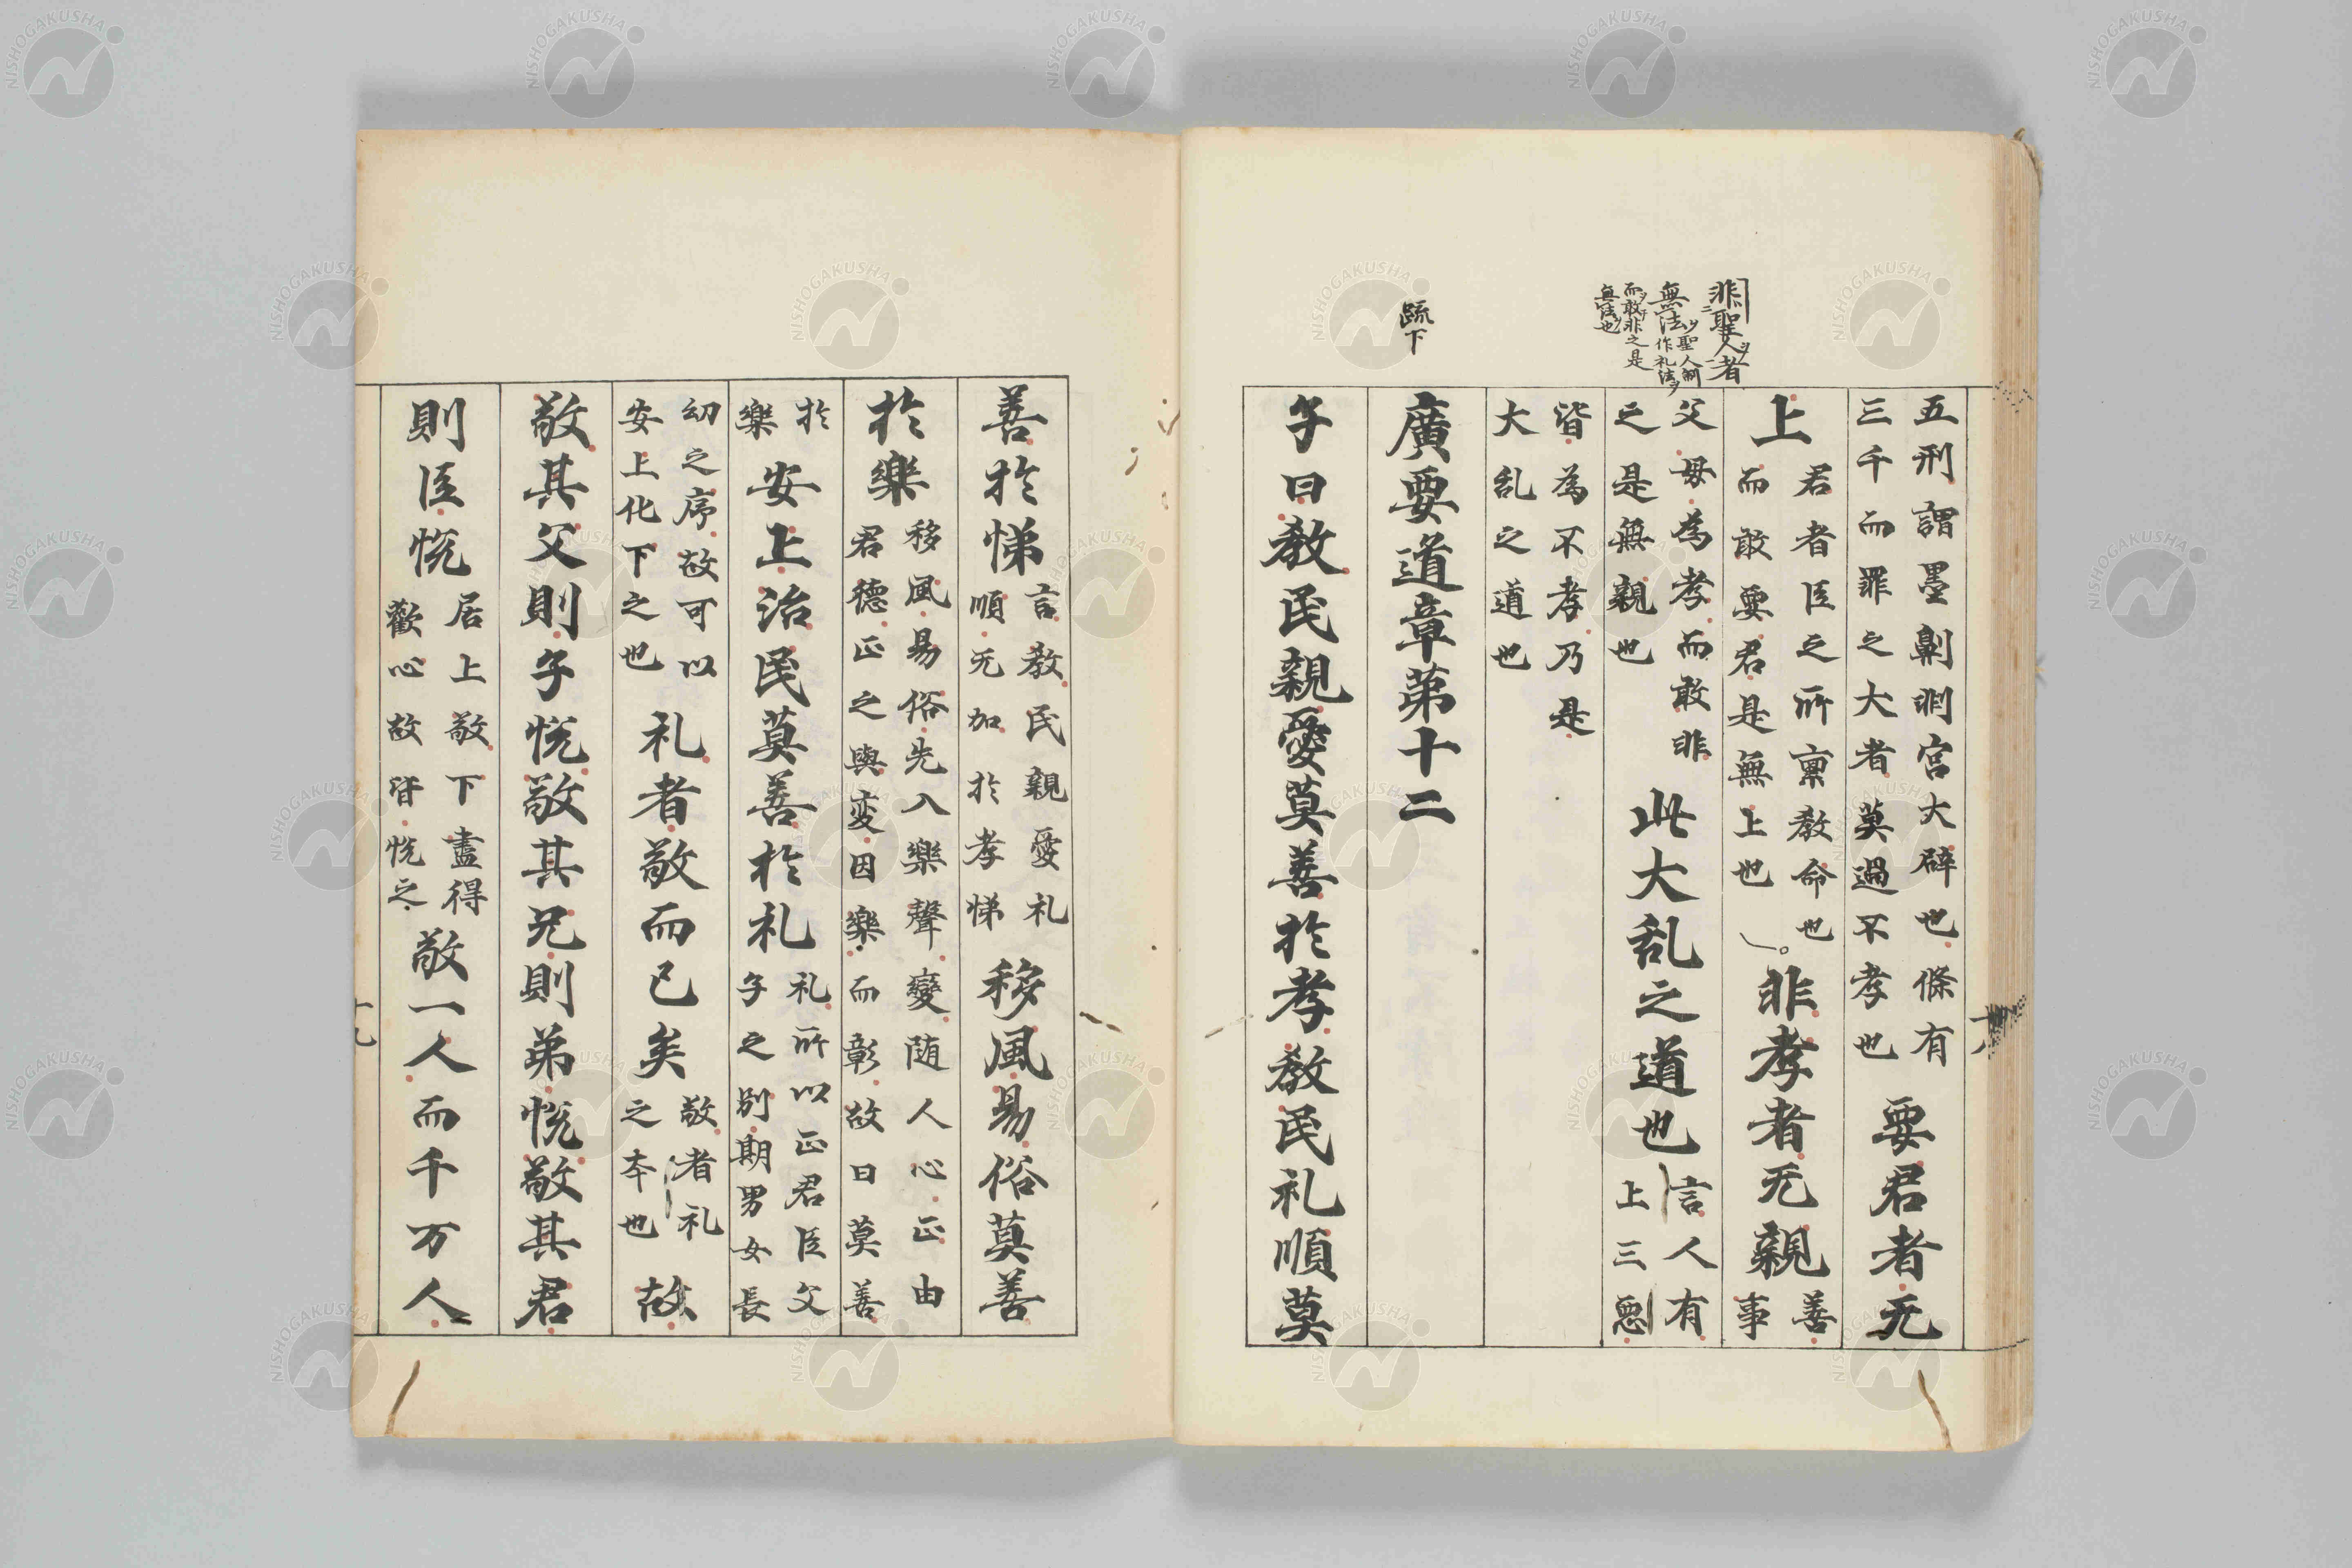 非聖人者
無法聖人制作礼法
而敢非之是
無法也
疏下
五刑謂墨劓剕宮大辟也條有三千而罪之大者莫過不孝也要君者无
上君者臣之所稟教命也而敢要君是無上也非孝者无親善事
父母為孝而敢非之是無親也此大乱之道也言人有上三惡
皆為不孝乃是大乱之道也
廣要道章第十二
子曰教民親愛莫善於孝教民礼順莫
善於悌言教民親愛礼順无加於孝悌移風易俗莫善
於樂移風易俗先入樂聲變随人心正由君德正之與変因樂而彰故曰莫善
於樂安上治民莫善於礼礼所以正君臣父子之別期男女長
幼之序故可以安上化下之也礼者敬而已矣敬者礼之本也故
敬其父則子悦敬其兄則弟悦敬其君
則臣悦居上敬下盡得歡心故皆悦之敬一人而千万人
NISHOGAKUSHA